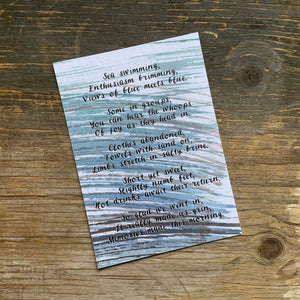 Sea swimming,
Enthusiasm brimming,
Views of blue meets blue.
Some in groups,
You can hear the whoops
Of joy as they head in.
Clothes abandoned,
Towels with sand on,
Limbs stretch in salty brine.
Short yet sweet,
Slightly numb feet,
Hot drinks await their return.
So glad we went in,
It really made us grin,
Memories made this morning.